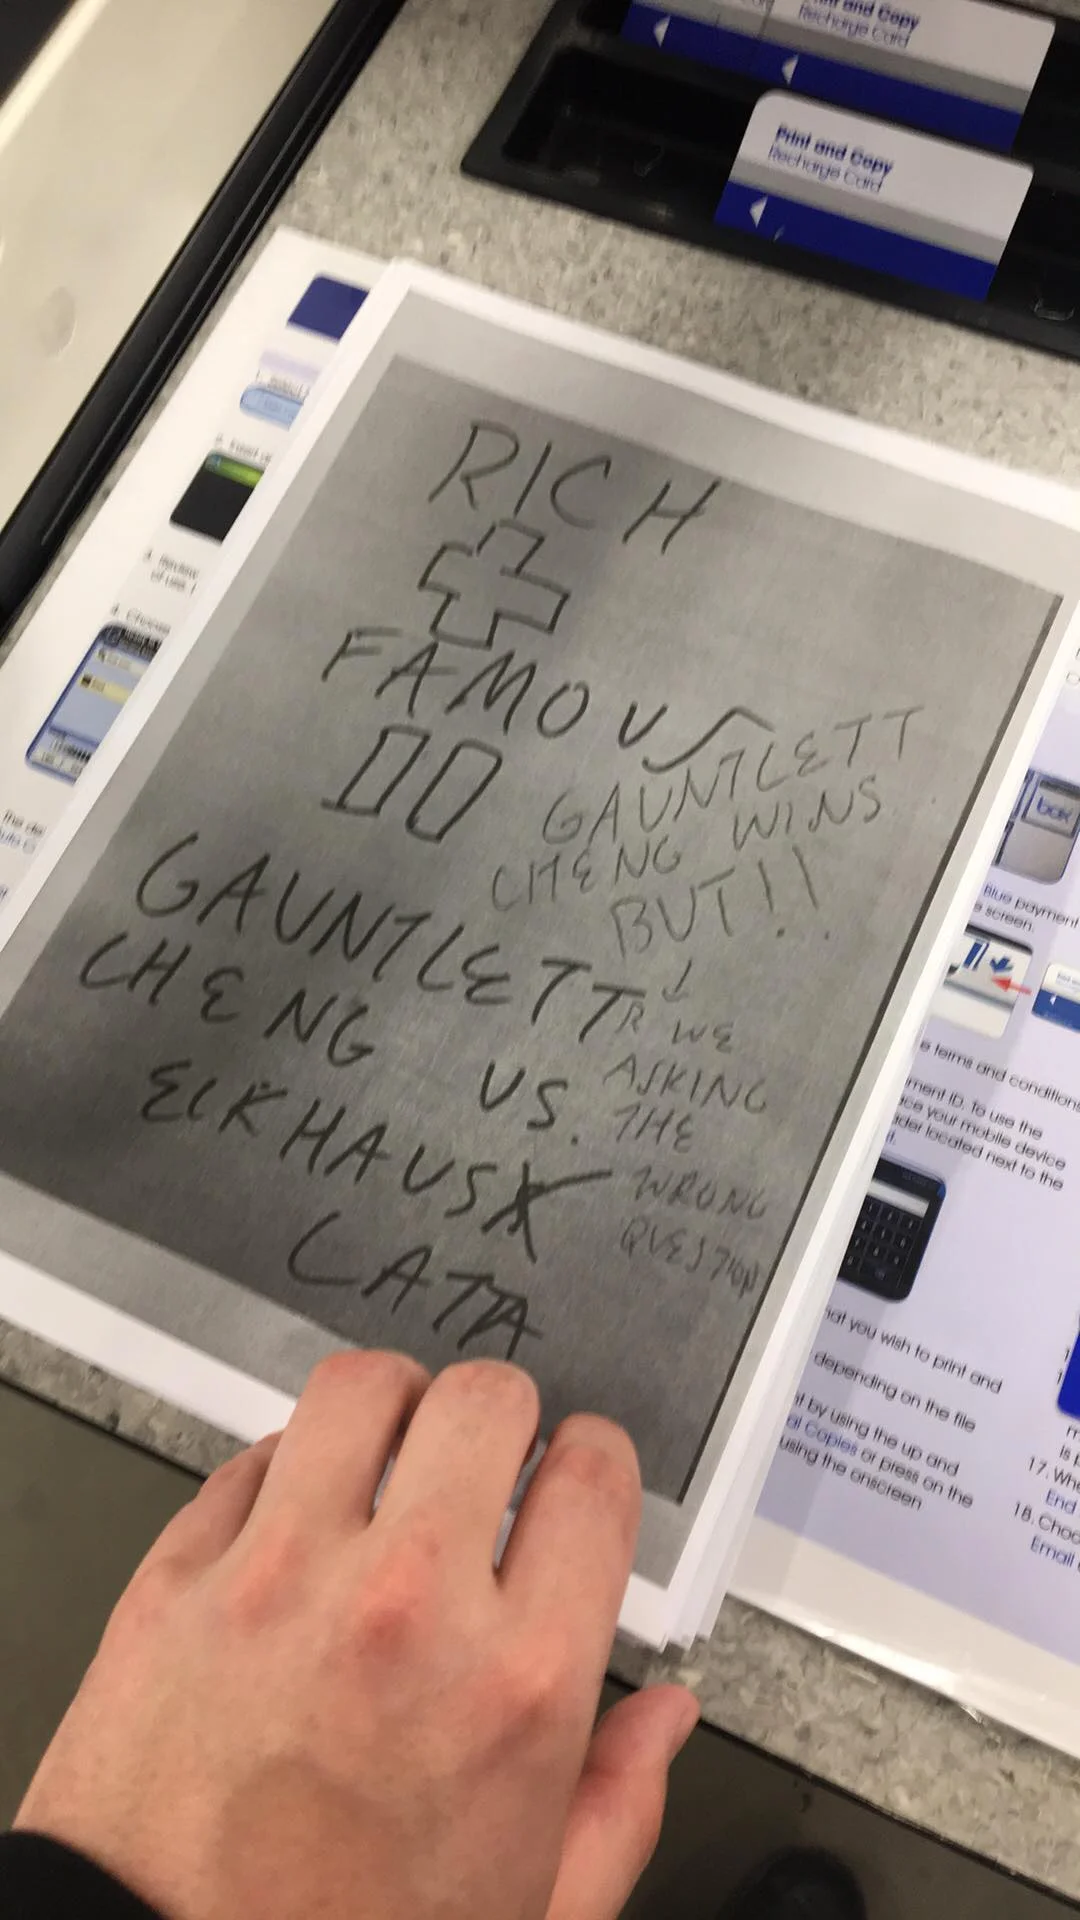 Print and Copy
Recharge Card
Print and Copy
Recharge Card
RICH
FAMOUS
GAUNTLETT
CHENG WINS
BUT!!
R WE
ASKING
THE
WRONG
QUESTION
GAUNTLETT
CHENG VS.
ECKHAUS
LATTA
box
Blue payment
screen.
terms and conditions
ment ID. To use the
ace your mobile device
der located next to the
you wish to print and
depending on the file
by using the up and
Copies or press on the
using the onscreen
17. Whe
End
18. Choo
Email